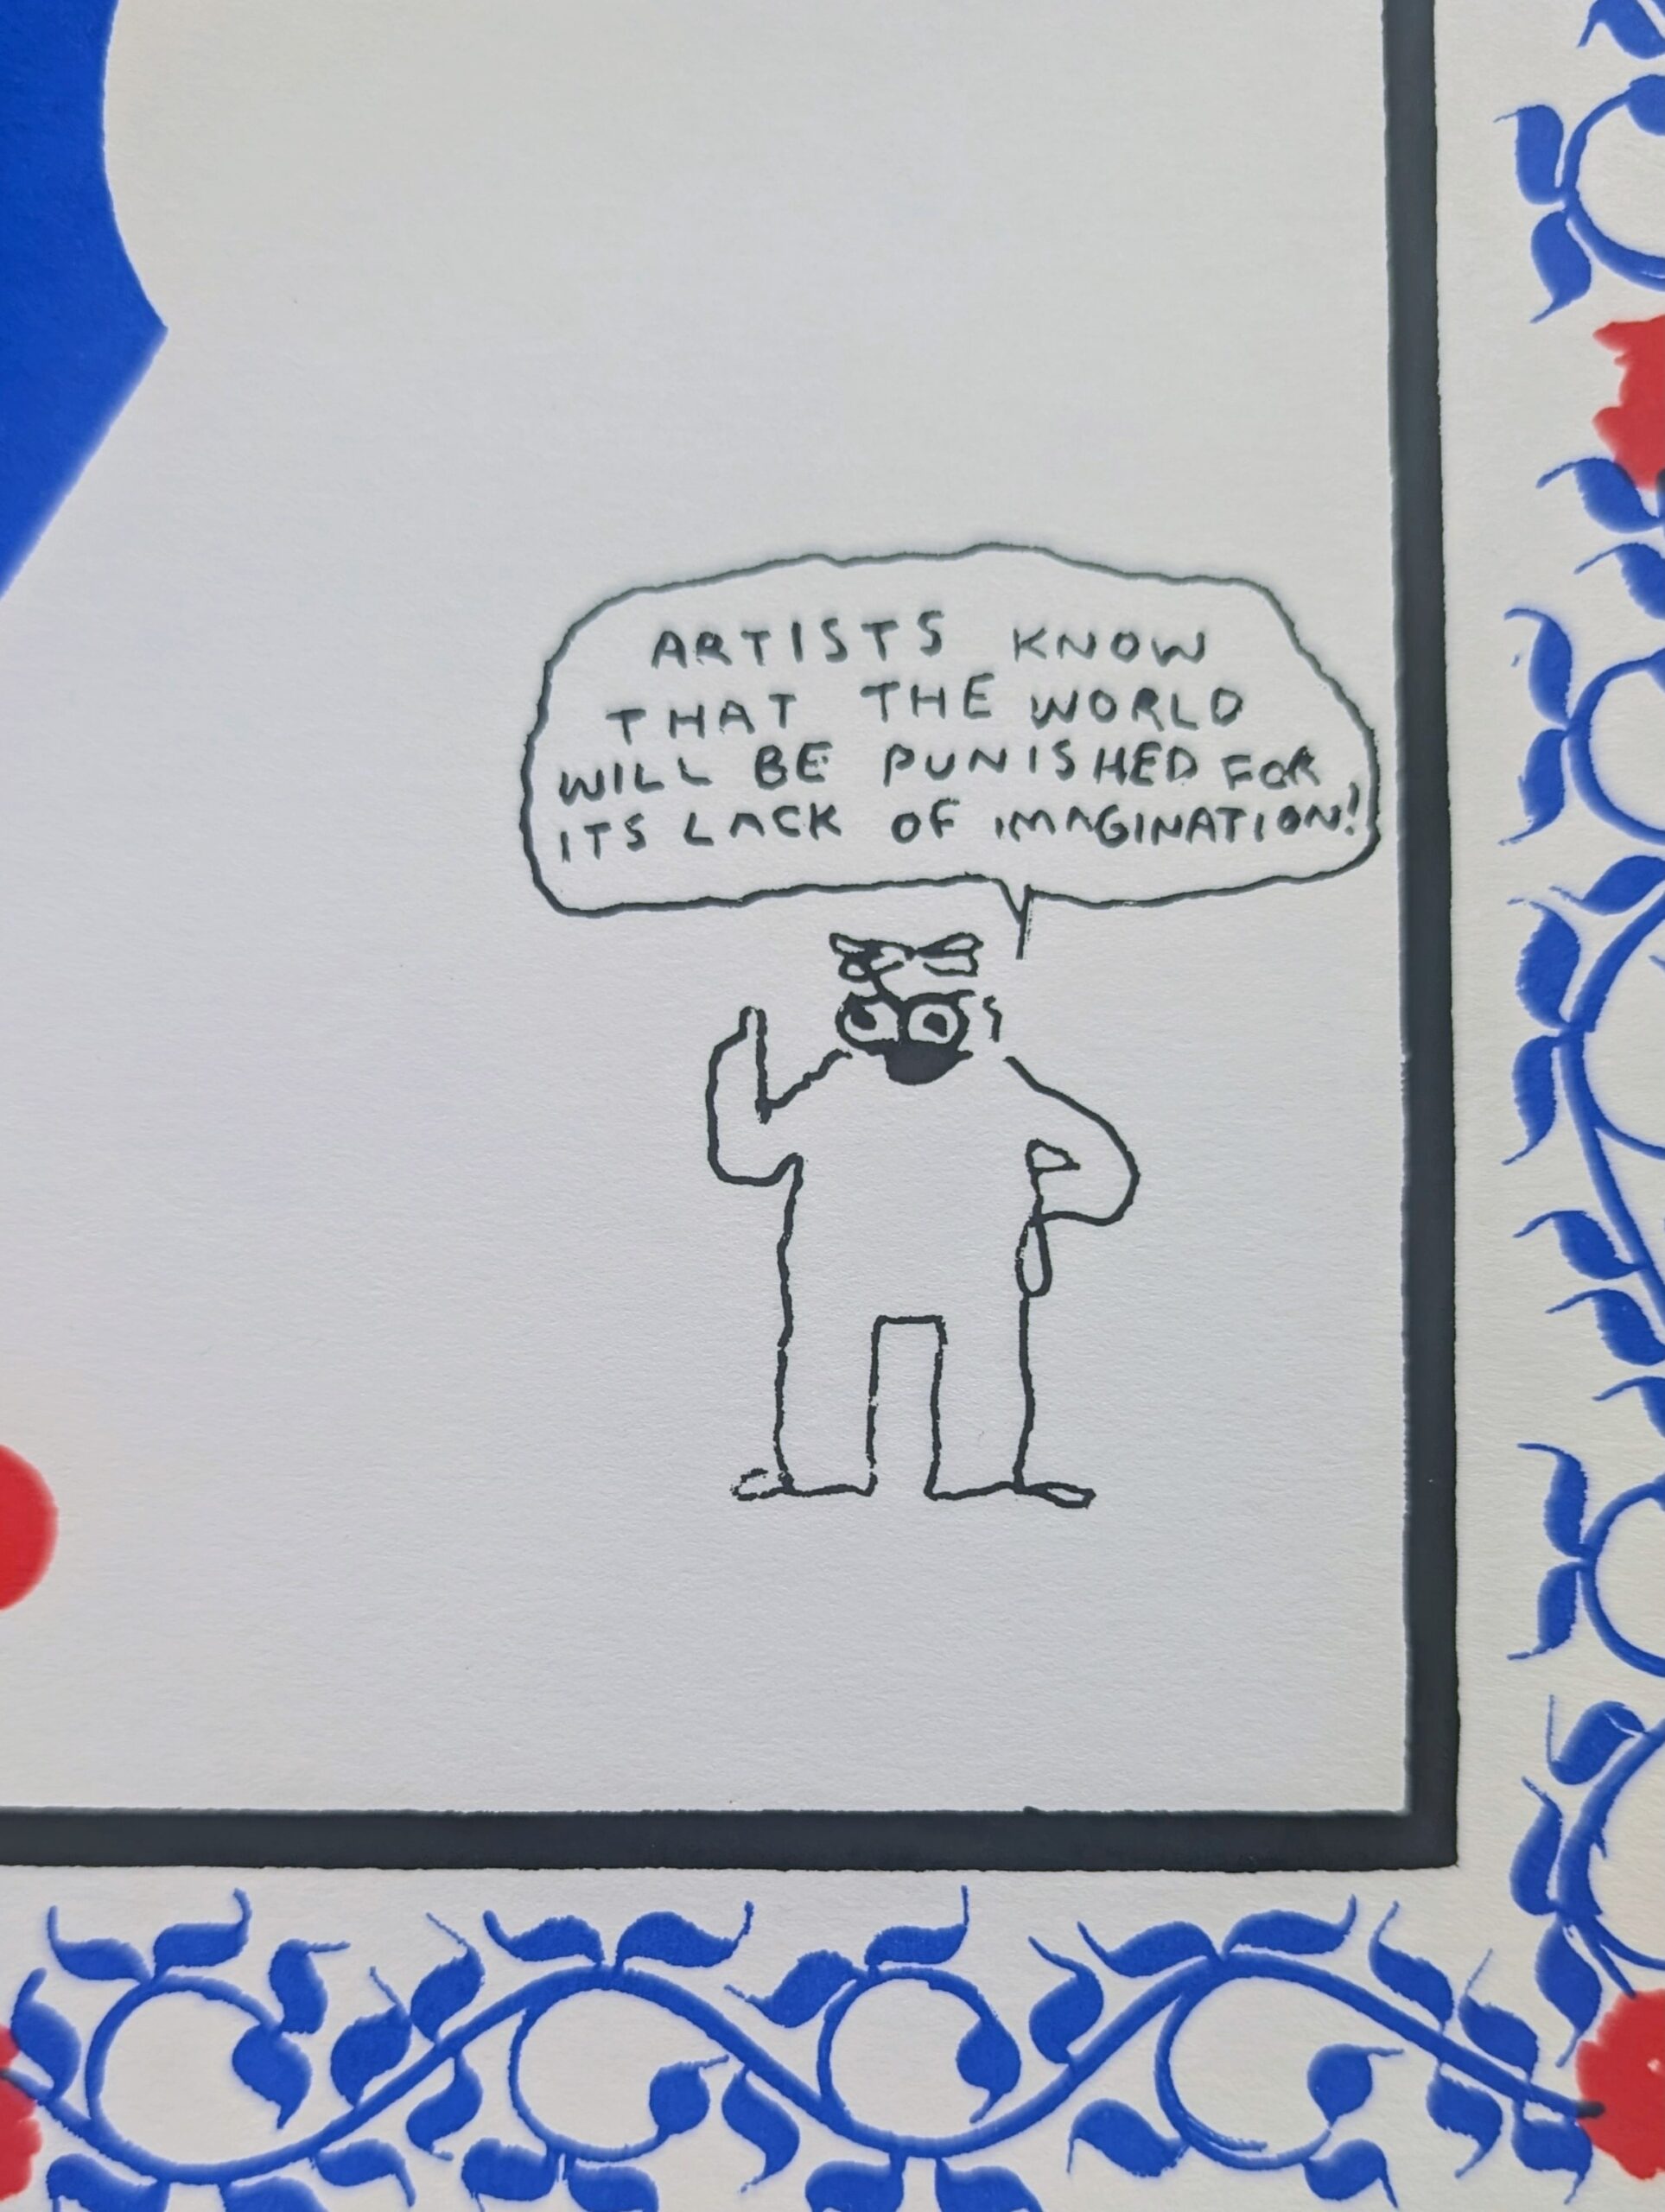 ARTISTS KNOW
THAT THE WORLD
WILL BE PUNISHED FOR
ITS LACK OF IMAGINATION!